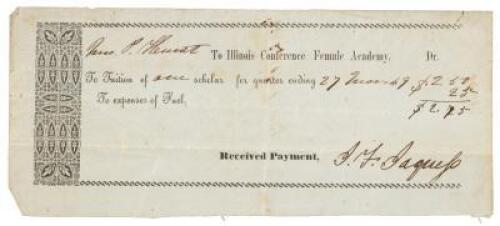 To Illinois Conference Female Academy. Dr.
To Tuition of one scholar for quarter ending 27 $2 50
To expenses of Fuel, 25
$2 75
Received Payment, J. F. Jaquess